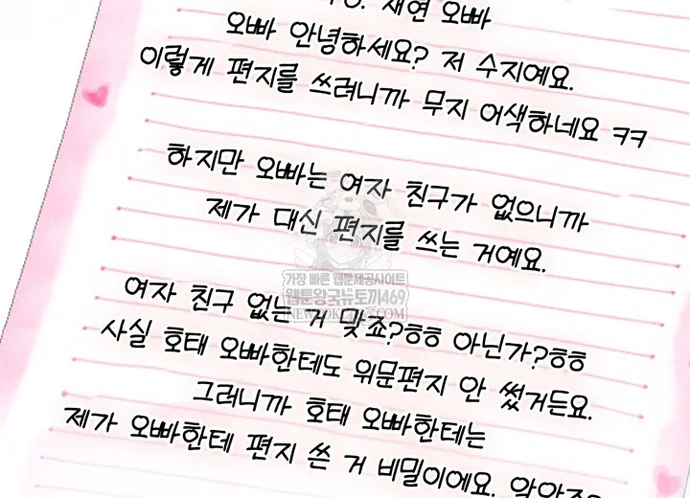 재연 오빠
오빠 안녕하세요? 저 수지예요.
이렇게 편지를 쓰려니까 무지 어색하네요 ㅋㅋ
하지만 오빠는 여자 친구가 없으니까
제가 대신 편지를 쓰는 거예요.
가장 빠른 웹툰제공사이트
웹툰왕국뉴토끼469
여자 친구 없는 거 맞죠?ㅎㅎ 아닌가?ㅎㅎ
사실 호태 오빠한테도 위문편지 안 썼거든요.
그러니까 호태 오빠한테는
제가 오빠한테 편지 쓴 거 비밀이에요.